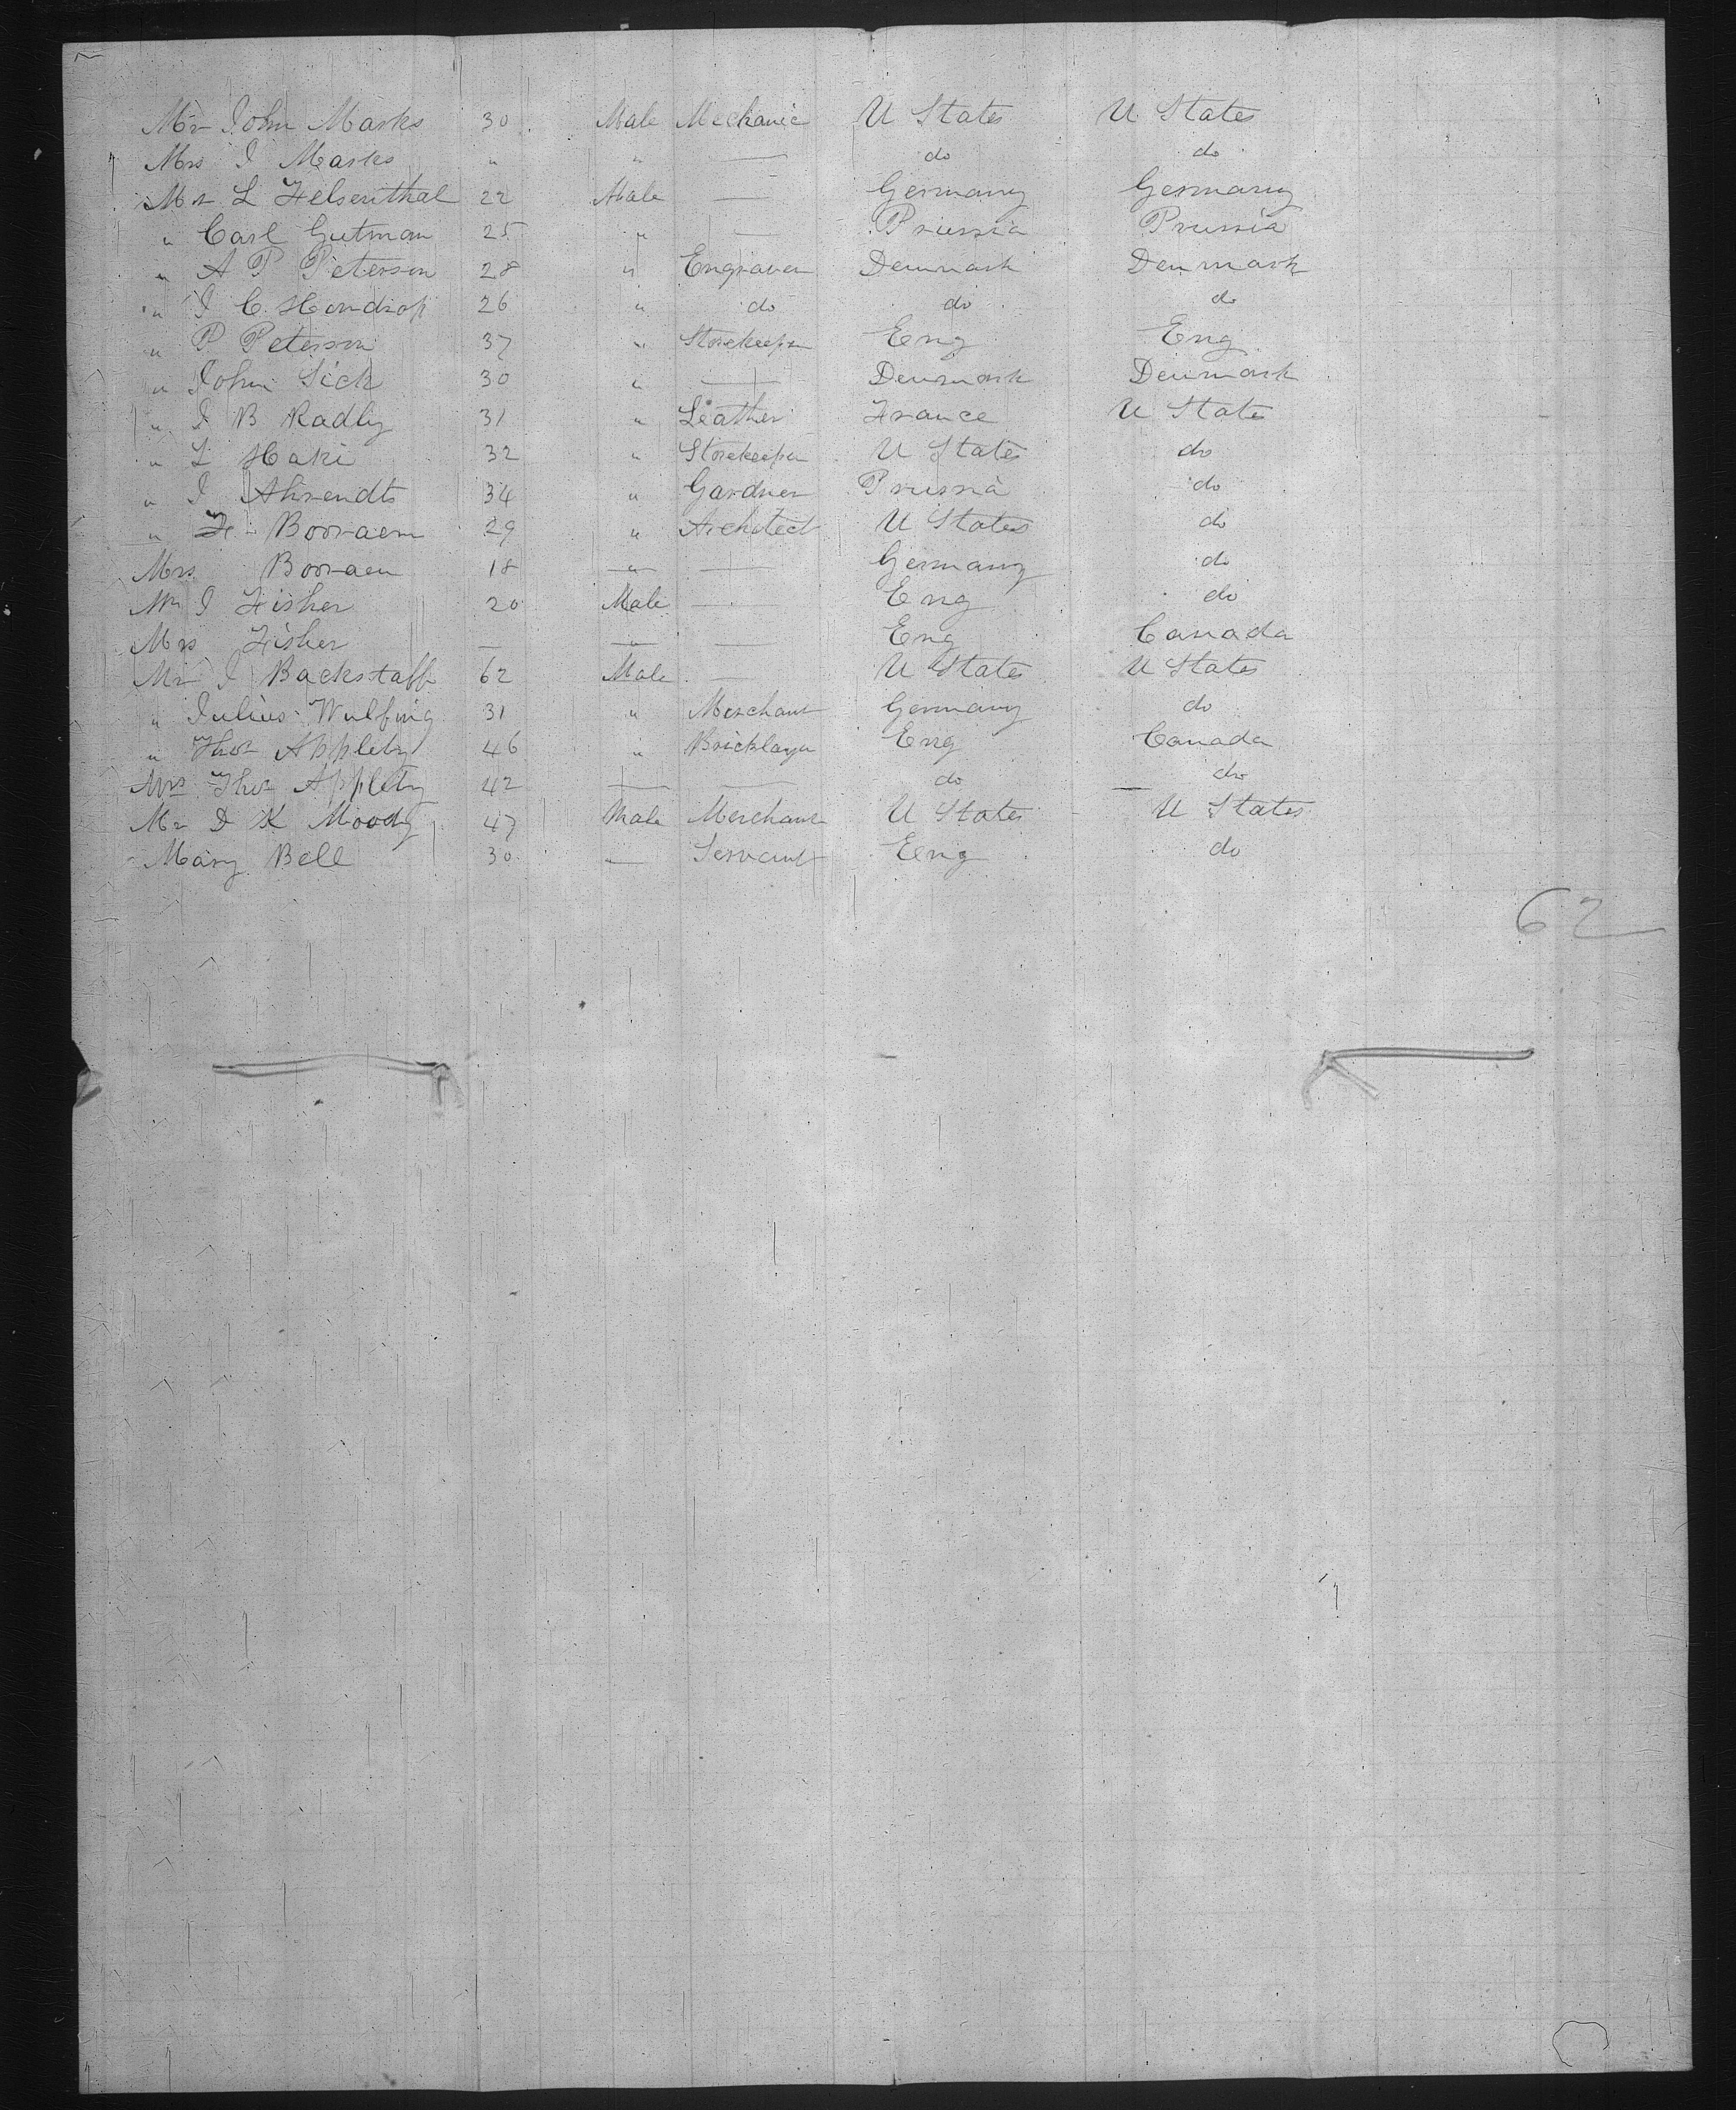 Mr John Marks 30 Male Mechanic U States U States
Mrs J Marks " " — do do
Mr L Felsenthal 22 Male — Germany Germany
" Carl Gutman 25 " — Prussia Prussia
" A P Peterson 28 " Engraver Denmark Denmark
" J C 26 " do do do
" P Peterson 37 " Storekeeper Eng Eng
" John Sick 30 " — Denmark Denmark
" J B Radly 31 " Leather France U State
" L Haki 32 " Storekeeper U States do
" J Ahrendts 34 " Gardner Prussia do
" F Booraem 29 " Architect U States do
Mrs Booraem 18 " — Germany do
Mr J Fisher 20 Male — Eng do
Mrs Fisher — " — Eng Canada
Mr J Backstaff 62 Male — U States U States
" Julius Wulfing 31 " Merchant Germany do
" Thos Appleby 46 " Bricklayer Eng Canada
Mrs Thos Appleby 42 — — do do
Mr D K Moody 47 Male Merchant U States U States
Mary Bell 30 — Servant Eng do
62